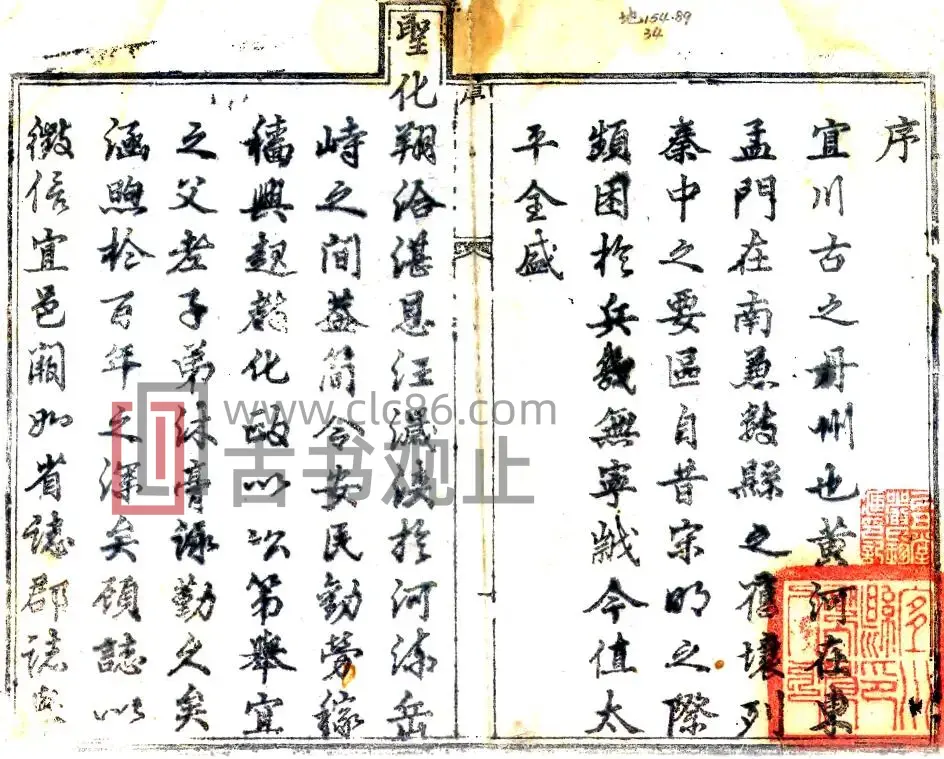 地154.89
34
序
宜川古之丹州也黄河在東
孟門在南兼數縣之舊壤列
秦中之要區自昔宋明之際
頻困於兵幾無寧歲今值太
平全盛
序
聖化翔洽湛恩汪濊浹於河流岳
峙之間蓋簡令安民勸勞稼
穡興起教化政以次第舉宜
之父老子弟休亭詠勤久矣
涵煦於百年之深矣顧誌以
徵信宜邑闕如省誌郡誌
www.clc86.com
古书观止